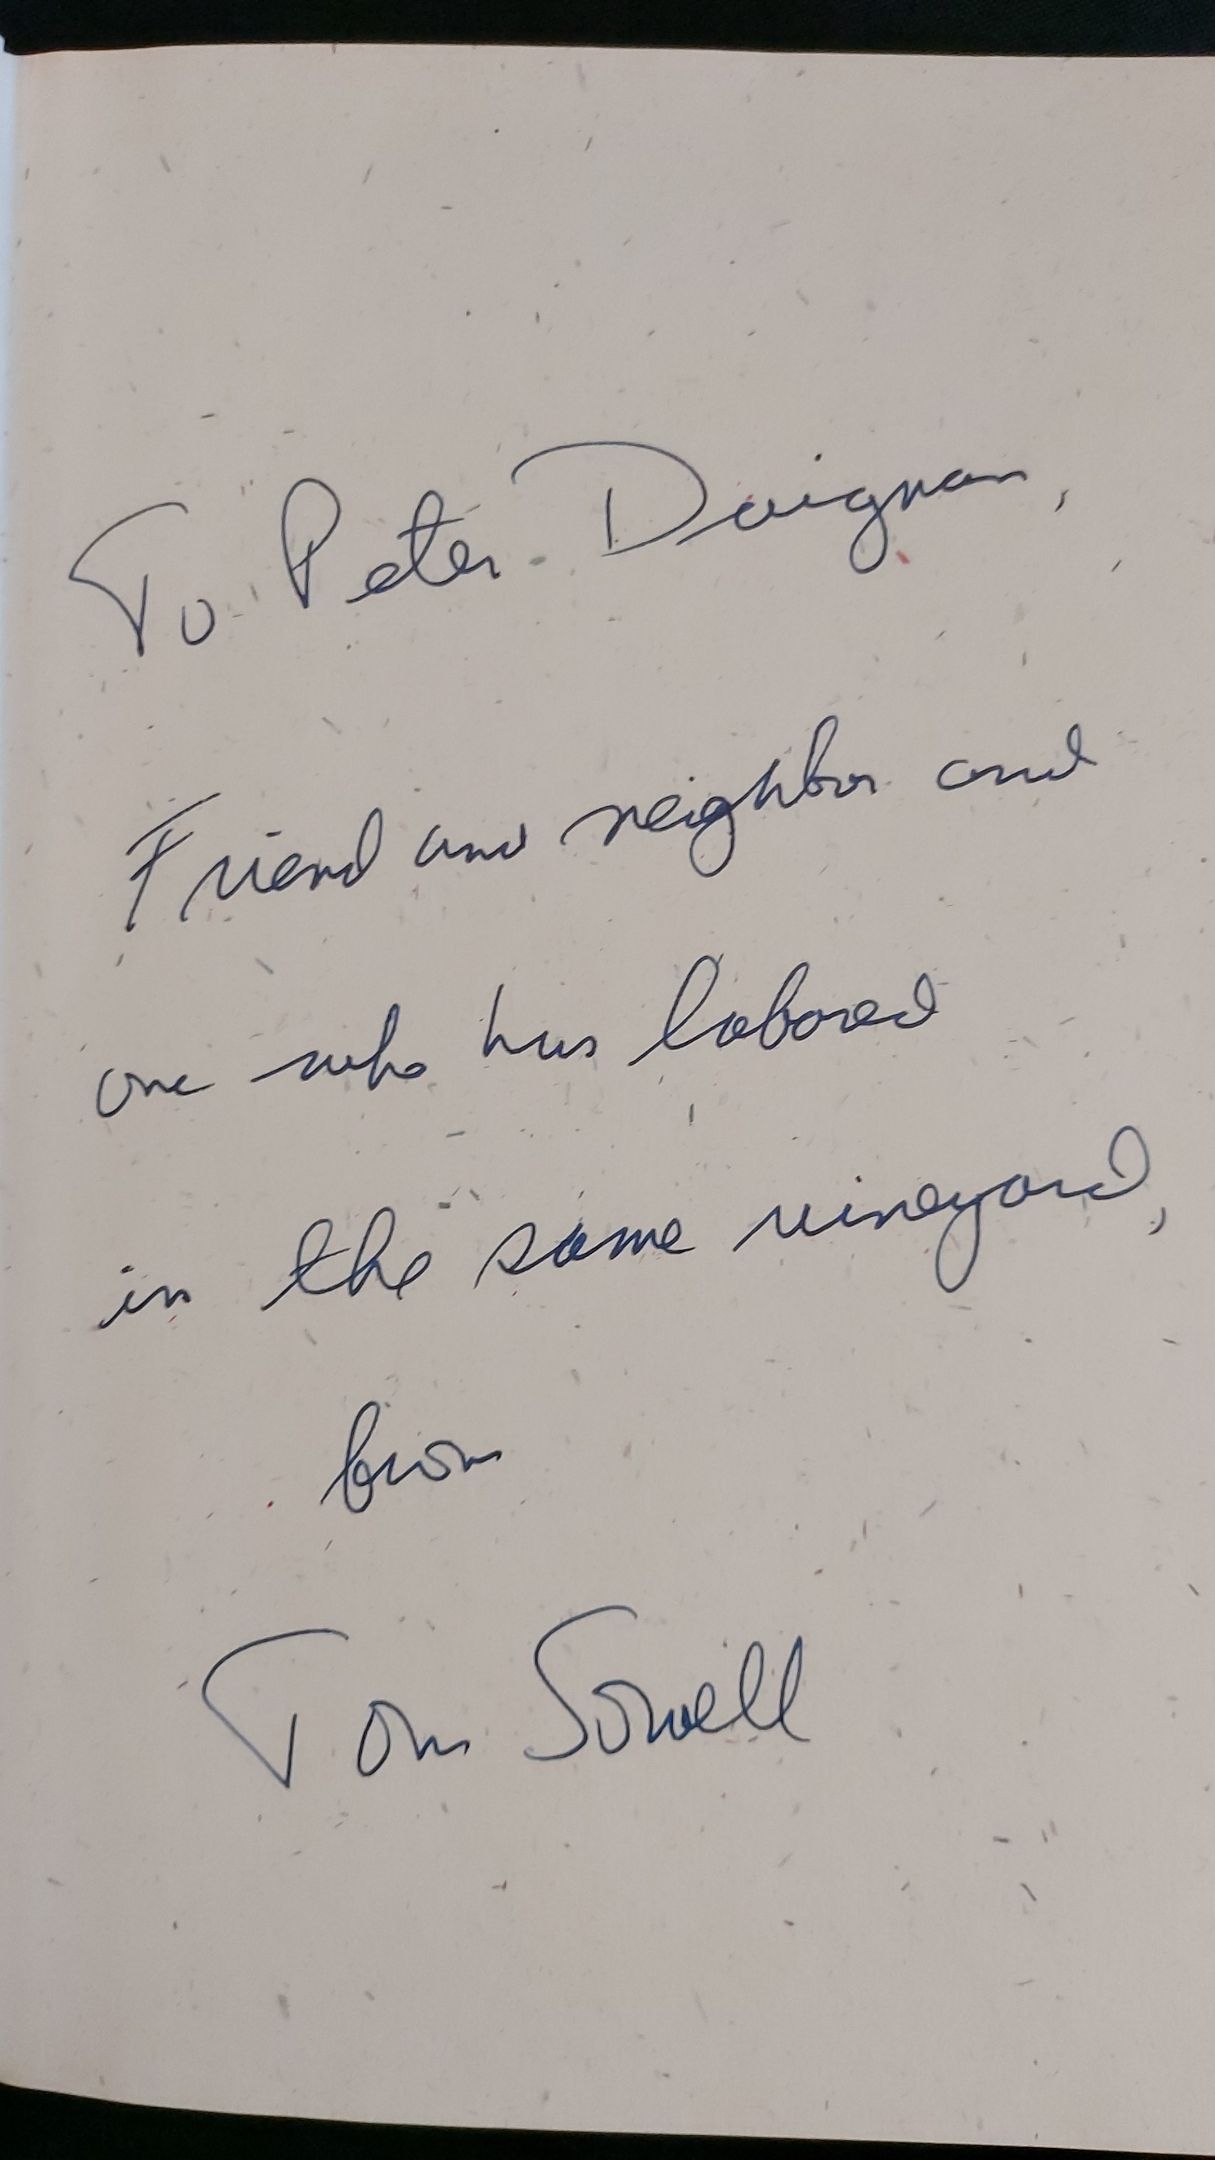 To Peter Duignan,
Friend and neighbor and
one who has labored
in the same vineyard,
from
Tom Sowell